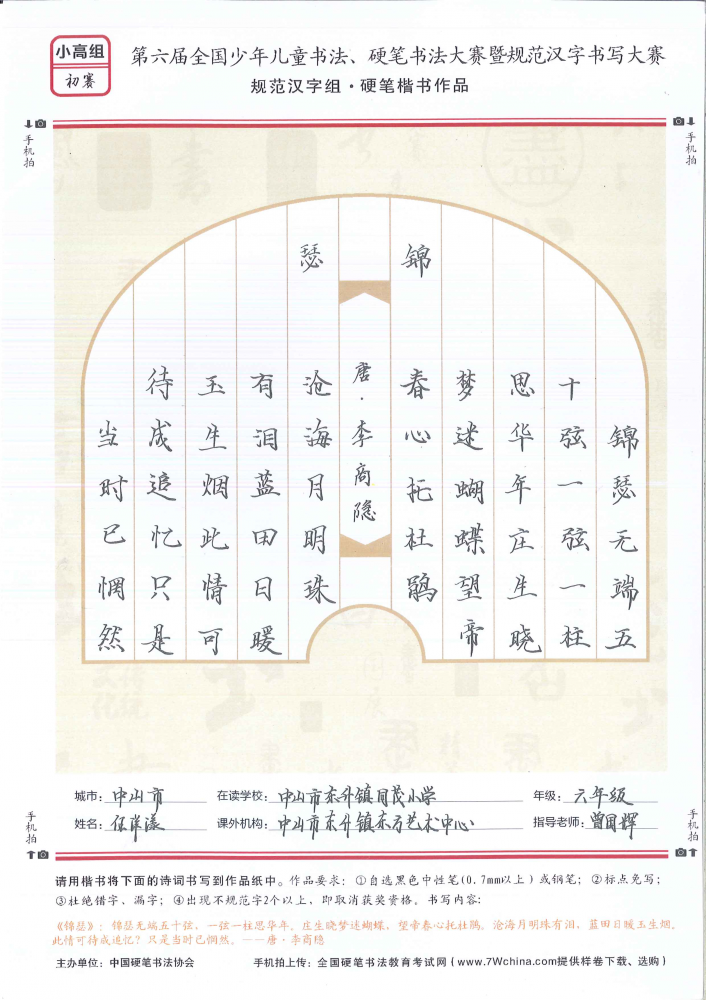 小高组
初赛
第六届全国少年儿童书法、硬笔书法大赛暨规范汉字书写大赛
规范汉字组·硬笔楷书作品
手机拍
手机拍
锦
瑟
锦瑟无端五
十弦一弦一柱
思华年庄生晓
梦迷蝴蝶望帝
春心托杜鹃
唐·李商隐
沧海月明珠
有泪蓝田日暖
玉生烟此情可
待成追忆只是
当时已惘然
城市：中山市 在读学校：中山市东升镇同茂小学 年级：六年级
姓名： 课外机构：中山市东升镇东方艺术中心 指导老师：曾国辉
手机拍
手机拍
请用楷书将下面的诗词书写到作品纸中。作品要求：①自选黑色中性笔(0.7mm以上)或钢笔；②标点免写；
③杜绝错字、漏字；④出现不规范字2个以上，即取消获奖资格。书写内容：
《锦瑟》：锦瑟无端五十弦，一弦一柱思华年。庄生晓梦迷蝴蝶，望帝春心托杜鹃。沧海月明珠有泪，蓝田日暖玉生烟。
此情可待成追忆？只是当时已惘然。——唐·李商隐
主办单位：中国硬笔书法协会 手机拍上传：全国硬笔书法教育考试网(www.7Wchina.com提供样卷下载、选购)